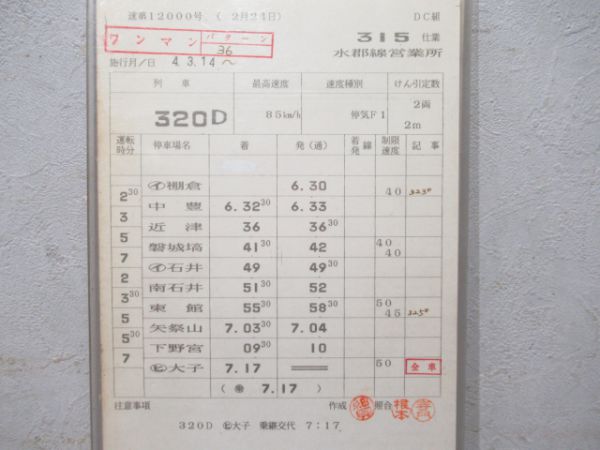 運第12000号 ( 2月24日)
DC組
ワンマン パターン 36
315 仕業
水郡線営業所
施行月/日 4.3.14～
列車 最高速度 速度種別 けん引定数
320D 85km/h 停気F1 2両 2m
運転時分 停車場名 着 発(通) 着発線 制限速度 記事
㋑棚倉 6.30
2³⁰ 40 323D
中豊 6.32³⁰ 6.33
3
近津 36 36³⁰
5
磐城塙 41³⁰ 42 40
7 40
㋑石井 49 49³⁰
2
南石井 51³⁰ 52
3³⁰
東館 55³⁰ 58³⁰ 50
5 45 325D
矢祭山 7.03³⁰ 7.04
5³⁰
下野宮 09³⁰ 10
7
大子 7.17 ═ 50 全車
( 7.17 )
注意事項 作成 照合 根本
320D 大子 乗継交代 7:17